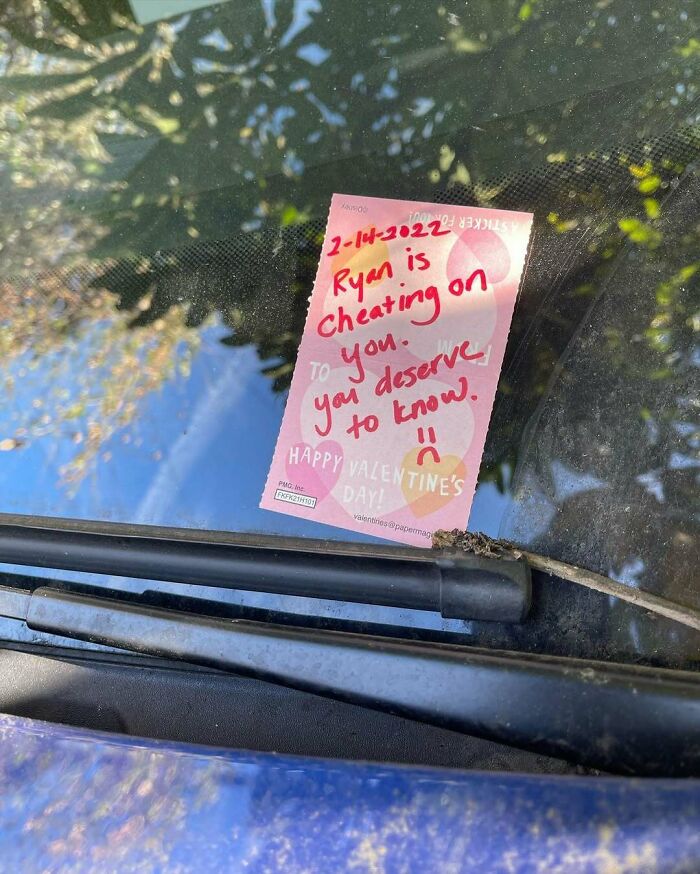 ©Disney
A STICKER FOR YOU!
2-14-2022
Ryan is
cheating on
you.
FROM
TO
you deserve
to know.
HAPPY VALENTINE'S
DAY!
PMG, Inc.
FKFK21H101